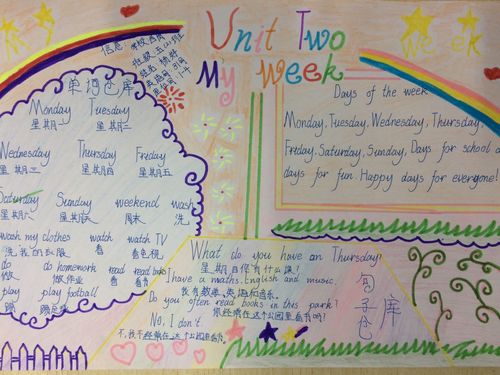 Unit Two
My Week
Week
单词仓库
Monday Tuesday
星期一 星期二
Wednesday Thursday Friday
星期三 星期四 星期五
Saturday Sunday weekend wash
星期六 星期天 周末 洗
wash my clothes watch watch TV
洗我的衣服 看 看电视
do do homework read read books
做 做作业 看 看书
play play football
踢 踢足球
Days of the week
Monday, Tuesday, Wednesday, Thursday,
Friday, Saturday, Sunday, Days for school a
days for fun. Happy days for everyone!
What do you have on Thursday?
星期四你有什么课?
I have a maths. English and music.
我有数学,英语和音乐。
Do you often read books in this park?
你经常在这个公园里看书吗?
No, I don't.
不,我不经常在这个公园里看书。
句子仓库